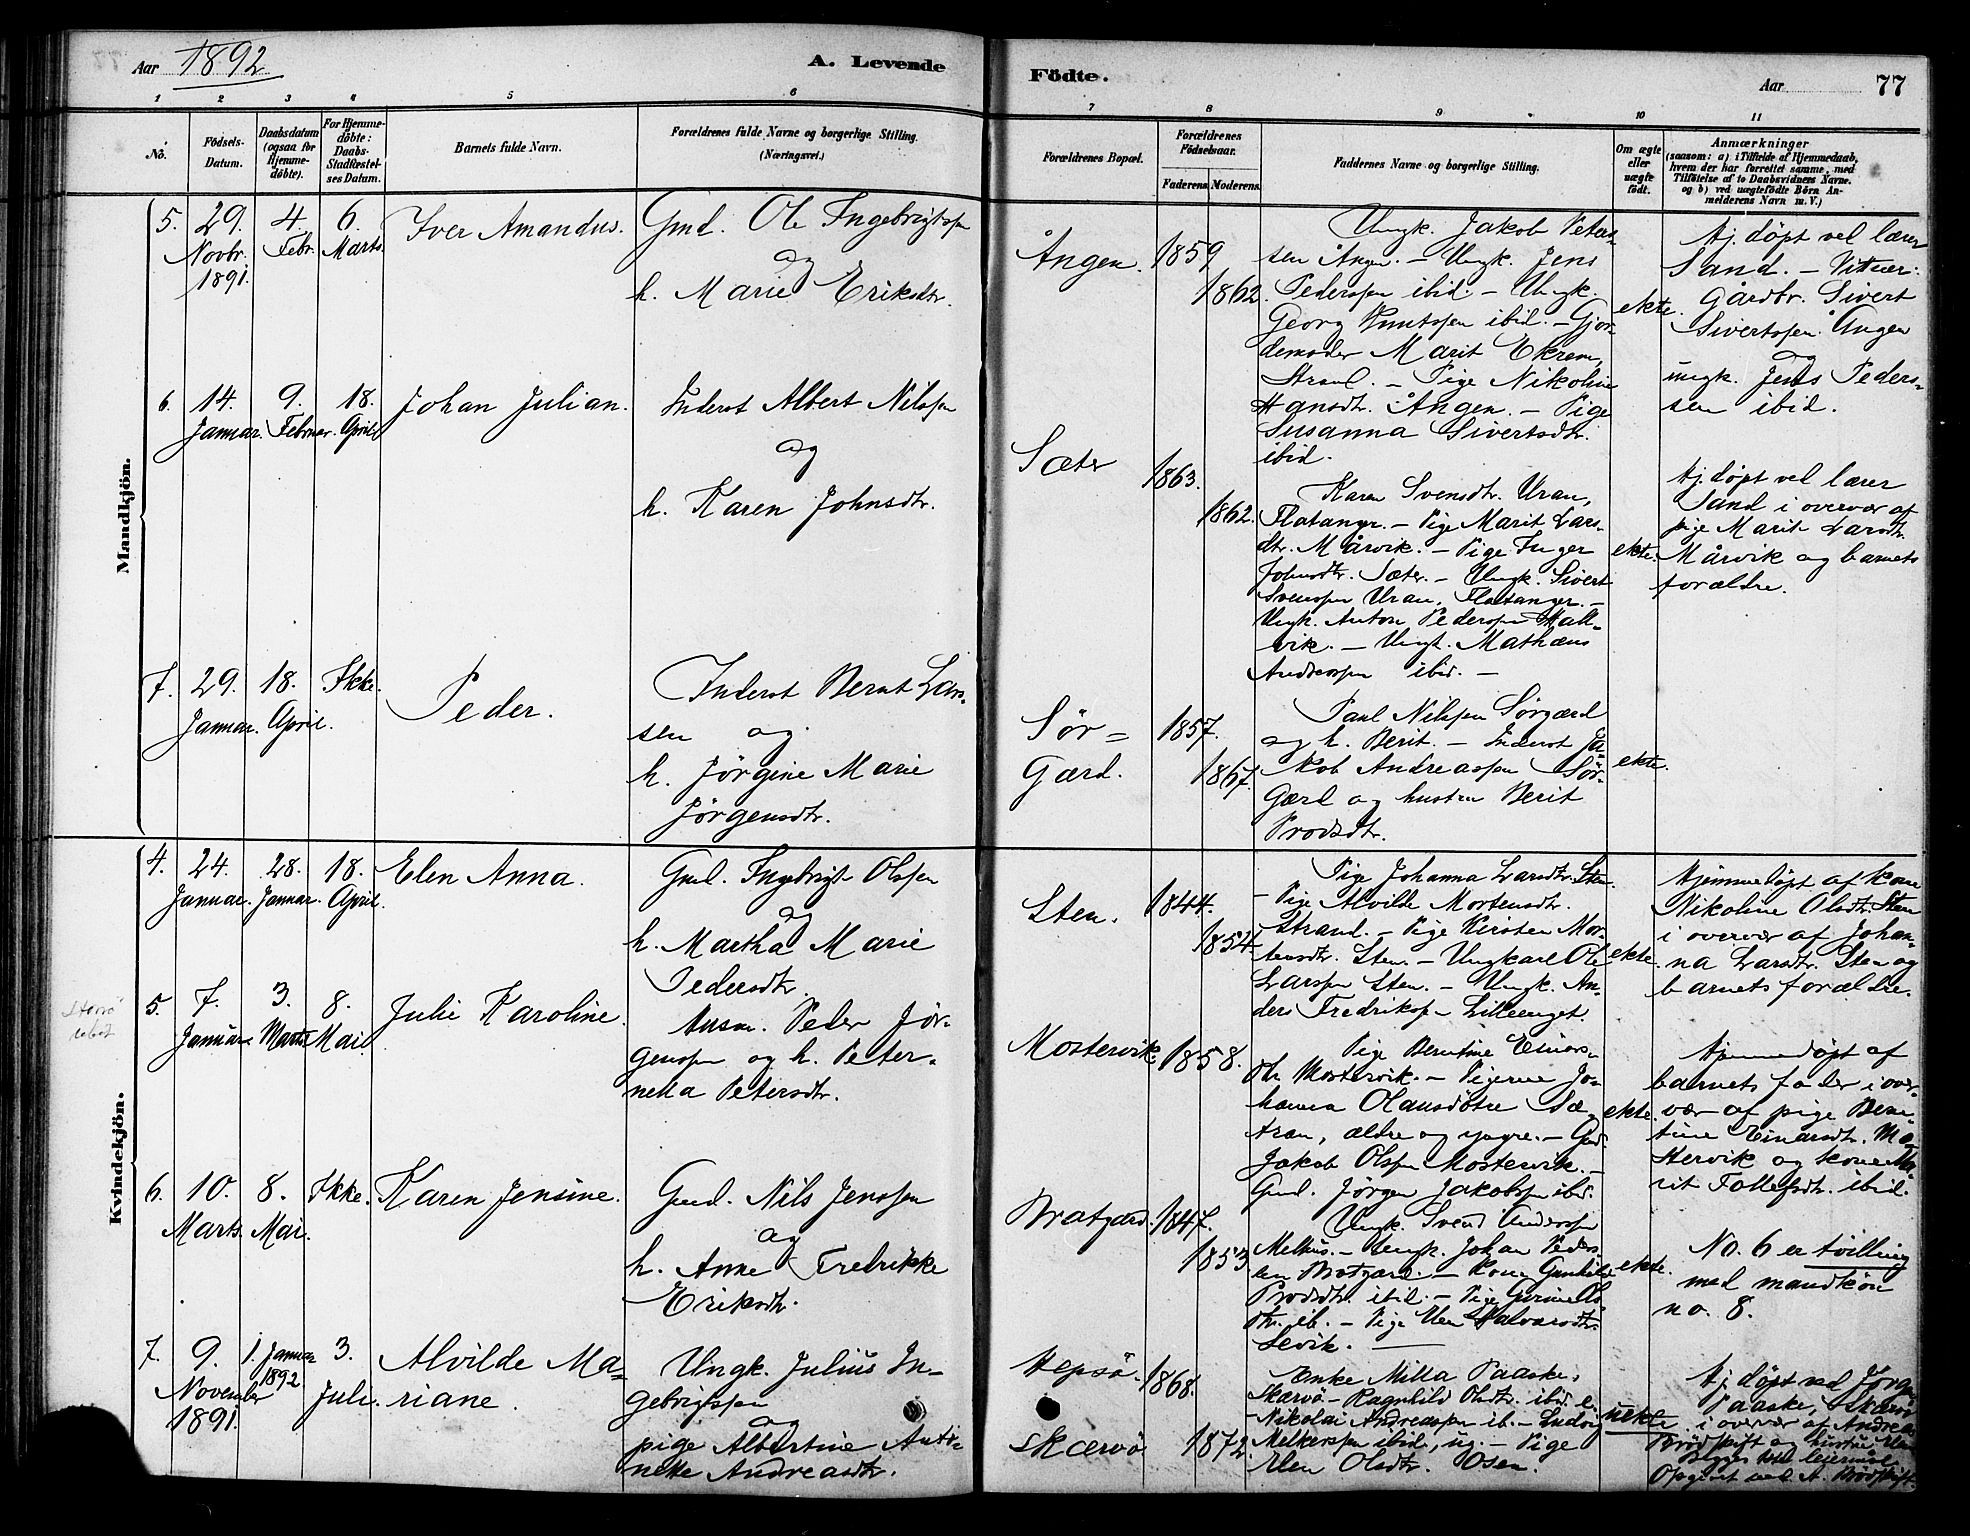 Aar 1892
A. Levende
Födte.
Aar
77
1 2 3 4 5 6
7 8 9 10 11
No.
Födsels-
Datum.
Daabsdatum
(ogsaa for
Hjemme-
döbte).
For Hjemme-
döbte:
Daabs-
Stadfæstel-
ses Datum.
Barnets fulde Navn.
Forældrenes fulde Navne og borgerlige Stilling.
(Næringsvei.)
Forældrenes Bopæl.
Forældrenes
Födselsaar.
Faderens. Moderens.
Faddernes Navne og borgerlige Stilling.
Om ægte
eller
uægte
født.
Anmærkninger
(saasom: a) i Tilfælde af Hjemmedaab,
hvem der har forrettet samme, med
Tilföielse af to Daabsvidners Navne.
og b) ved uægtefödte Börn An-
melderens Navn m. V.)
Mandkjön.
5.
29.
Novbr.
1891.
4
Febr.
6.
Marts.
Iver Amandus.
Gmd. Ole Ingebrigtsen
og
h. Marie Eriksdtr.
Ången.
1859
1862.
Ungk. Jakob Peter-
sen Ången. – Ungk. Jens
Pederssen ibid. – Ungk.
Georg Knutssen ibid. – Gjor-
demoder Marit Ekrem,
Strand. – Pige Nikoline
Hansdtr. Ången. – Pige
Susanna Sivertsdtr.
ibid.
ekte.
Hj. døpt vel lærer
Sand. – Vitner:
Gårdbr. Sivert
Sivertssen Ången
og
ungk. Jens Peders-
sen ibid.
6.
14.
Januar.
9.
Februar.
18.
April
Johan Julian.
Inderst Albert Nilssen
og
h. Karen Johnsdtr.
Sæter
1863.
1862.
Karen Svensdtr. Uran,
Flatanger. – Pige Marit Lars-
dtr. Mårvik. – Pige Inger
Johnsdtr. Sæter. – Ungk. Sivert
Svenssen Uran, Flatanger. –
Ungk. Anton Pederssen Hall-
vik. – Ungk. Mathæus
Andreassen ibid. –
ekte.
Hj. døpt vel lærer
Sand i overvær af
pige Marit Larsdtr.
Mårvik og barnets
forældre.
7.
29.
Januar.
18.
April.
Ikke.
Peder.
Inderst Bernt Lars-
sen og
h. Jörgine Marie
Jörgensdtr.
Sør-
Gærd.
1857.
1867.
Paul Nilssen Sörgærd
og h. Berit. – Inderst Ja-
kob Andreassen Sör-
Gærd og hustru Berit
Prodsdtr.
ekte.
Kvindekjön.
4.
24.
Januar.
28.
Januar.
18.
April.
Elen Anna.
Gmd. Ingebrigt Olssen
og
h. Martha Marie
Pedersdtr.
Sten.
1844.
1854
Pige Johanna Larsdtr. Sten.
– Pige Alvilde Mortensdtr.
Strand. – Pige Kirsten Mor-
tensdtr. Sten. – Ungkarl Ole
Larssen Sten. – Ungk. An-
ders Fredriks. – Lilleenget.
ekte.
Hjemmedøpt af kone
Nikoline Olsdtr. Sten
i overvær af Johan-
na Larsdtr. Sten og
barnets forældre.
5.
7.
Januar.
3.
Marts
8.
Mai.
Julie Karoline.
Husm. Peder Jör-
genssen og h. Peter-
nella Petersdtr.
Mostervik
1858.
Pige Berntine Einars-
dtr. Mostervik. – Pigerne Jo-
hanna Olausdøtre Sæ-
tran, ældre og yngre. – Gmd.
Jakob Olssen Mostervik. –
Gmd. Jörgen Jakobssen ibid.
ekte.
Hjemmedøpt af
barnets fader i over-
vær af pige Bern-
tine Einarsdtr. Mo-
stervik og kone Ma-
rit Tollefsdtr. ibid.
6.
10.
Marts.
8.
Mai.
Ikke.
Karen Jensine.
Gmd. Nils Jenssen
og
h. Anne Fredrikke
Eriksdtr.
Bratgard.
1847.
1853
Ungk. Svend Anderssen
Melhus. – Ungk. Johan Peders-
sen Bratgard. – Kone Gunhild
Prodsdtr. ibid. – Pige Gurine Ols-
dtr. ib. – Pige Elen Halvarsdtr.
Sevik.
ekte.
No. 6 er tvilling
med mandkön
no. 8.
7.
9.
November
1891.
1. Januar
1892
3.
Juli.
Alvilde Ma-
riane.
Ungk. Julius In-
gebrigtssen
og
pige Albertine Anto-
nette Andreasdtr.
Hepsö.
Skærvö
1868.
1872.
Enke Milla Paaske,
Skærvö – Ragnhild Olsdtr. ibid.
– Nikolai Andreassen ib. – Ludvig
Melkerssen ibid., ug. – Pige
Elen Olsdtr. Osen.
uekte
Hj. døpt ved Jörgen
Paaske, Skærvö
i overvær af Andreas
Brödskift og hustru Elen
Begges 1ste leiermål.
Opgivet ved A. Brödskift.